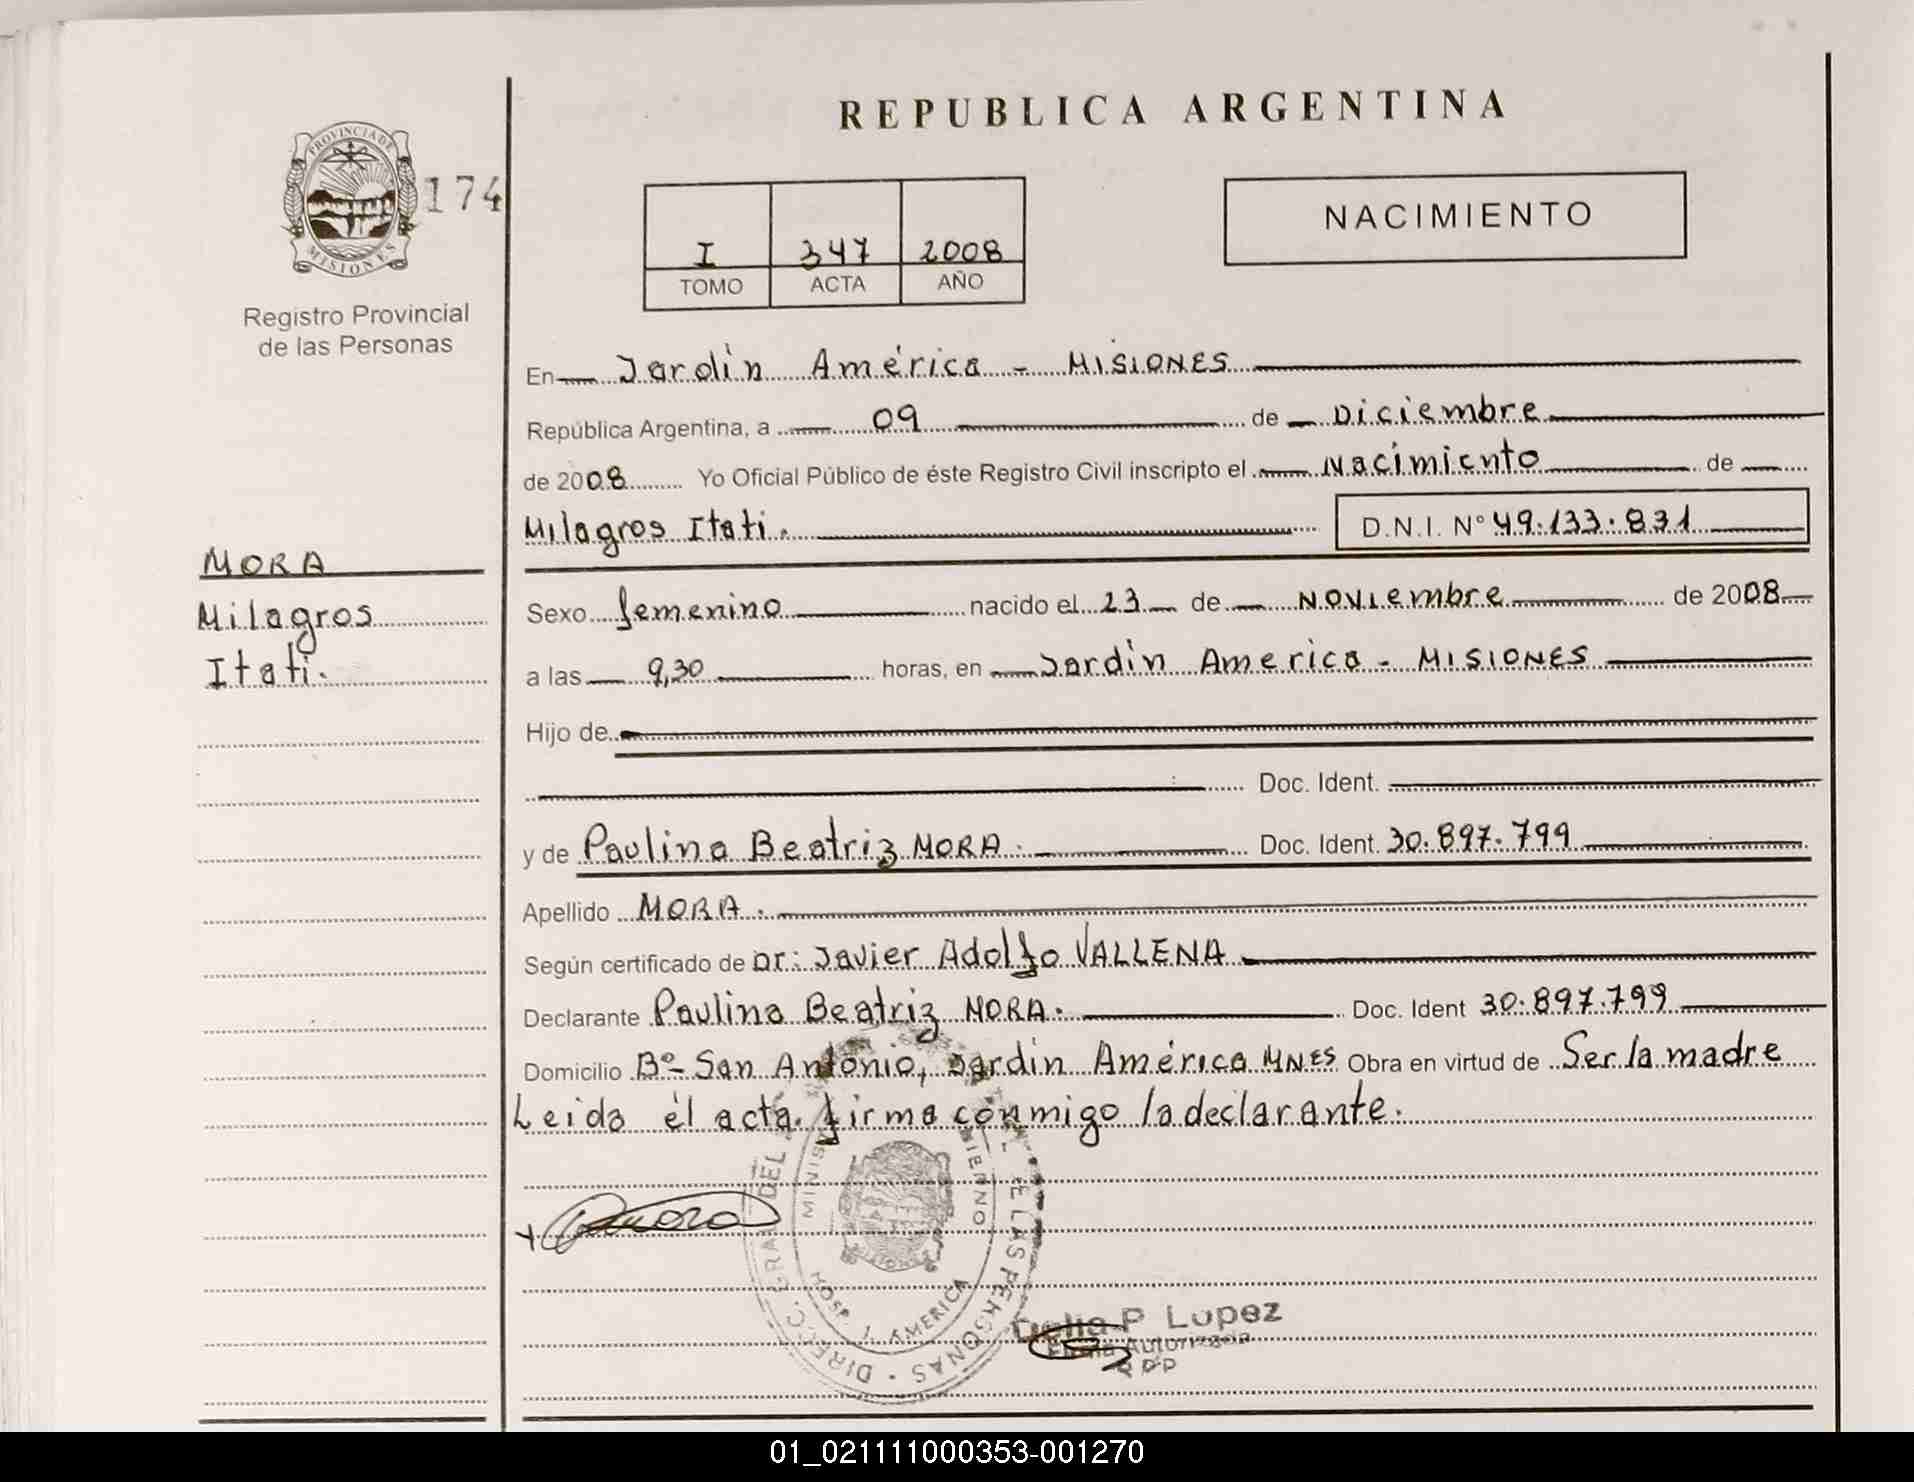 REPUBLICA ARGENTINA
PROVINCIA DE
MISIONES
174
Registro Provincial
de las Personas
I 347 2008
TOMO ACTA AÑO
NACIMIENTO
En Jardín América - MISIONES
República Argentina, a 09 de Diciembre
de 2008 Yo Oficial Público de éste Registro Civil inscripto el Nacimiento de
Milagros Itati. D.N.I. N° 49.133.831
MORA
Milagros
Itati.
Sexo femenino nacido el 23 de Noviembre de 2008
a las 9,30 horas, en Jardín America - MISIONES
Hijo de
Doc. Ident.
y de Paulina Beatriz MORA. Doc. Ident. 30.897.799
Apellido MORA.
Según certificado de Dr: Javier Adolfo VALLENA
Declarante Paulina Beatriz MORA. Doc. Ident 30.897.799
Domicilio Bº San Antonio, Jardín América MNES Obra en virtud de Ser la madre
Leida el acta. firma conmigo la declarante.
DIRECC. GRAL DEL DE LAS PERSONAS
HOSP. J. AMERICA
Delia P. Lopez
Autorizada
01_021111000353-001270